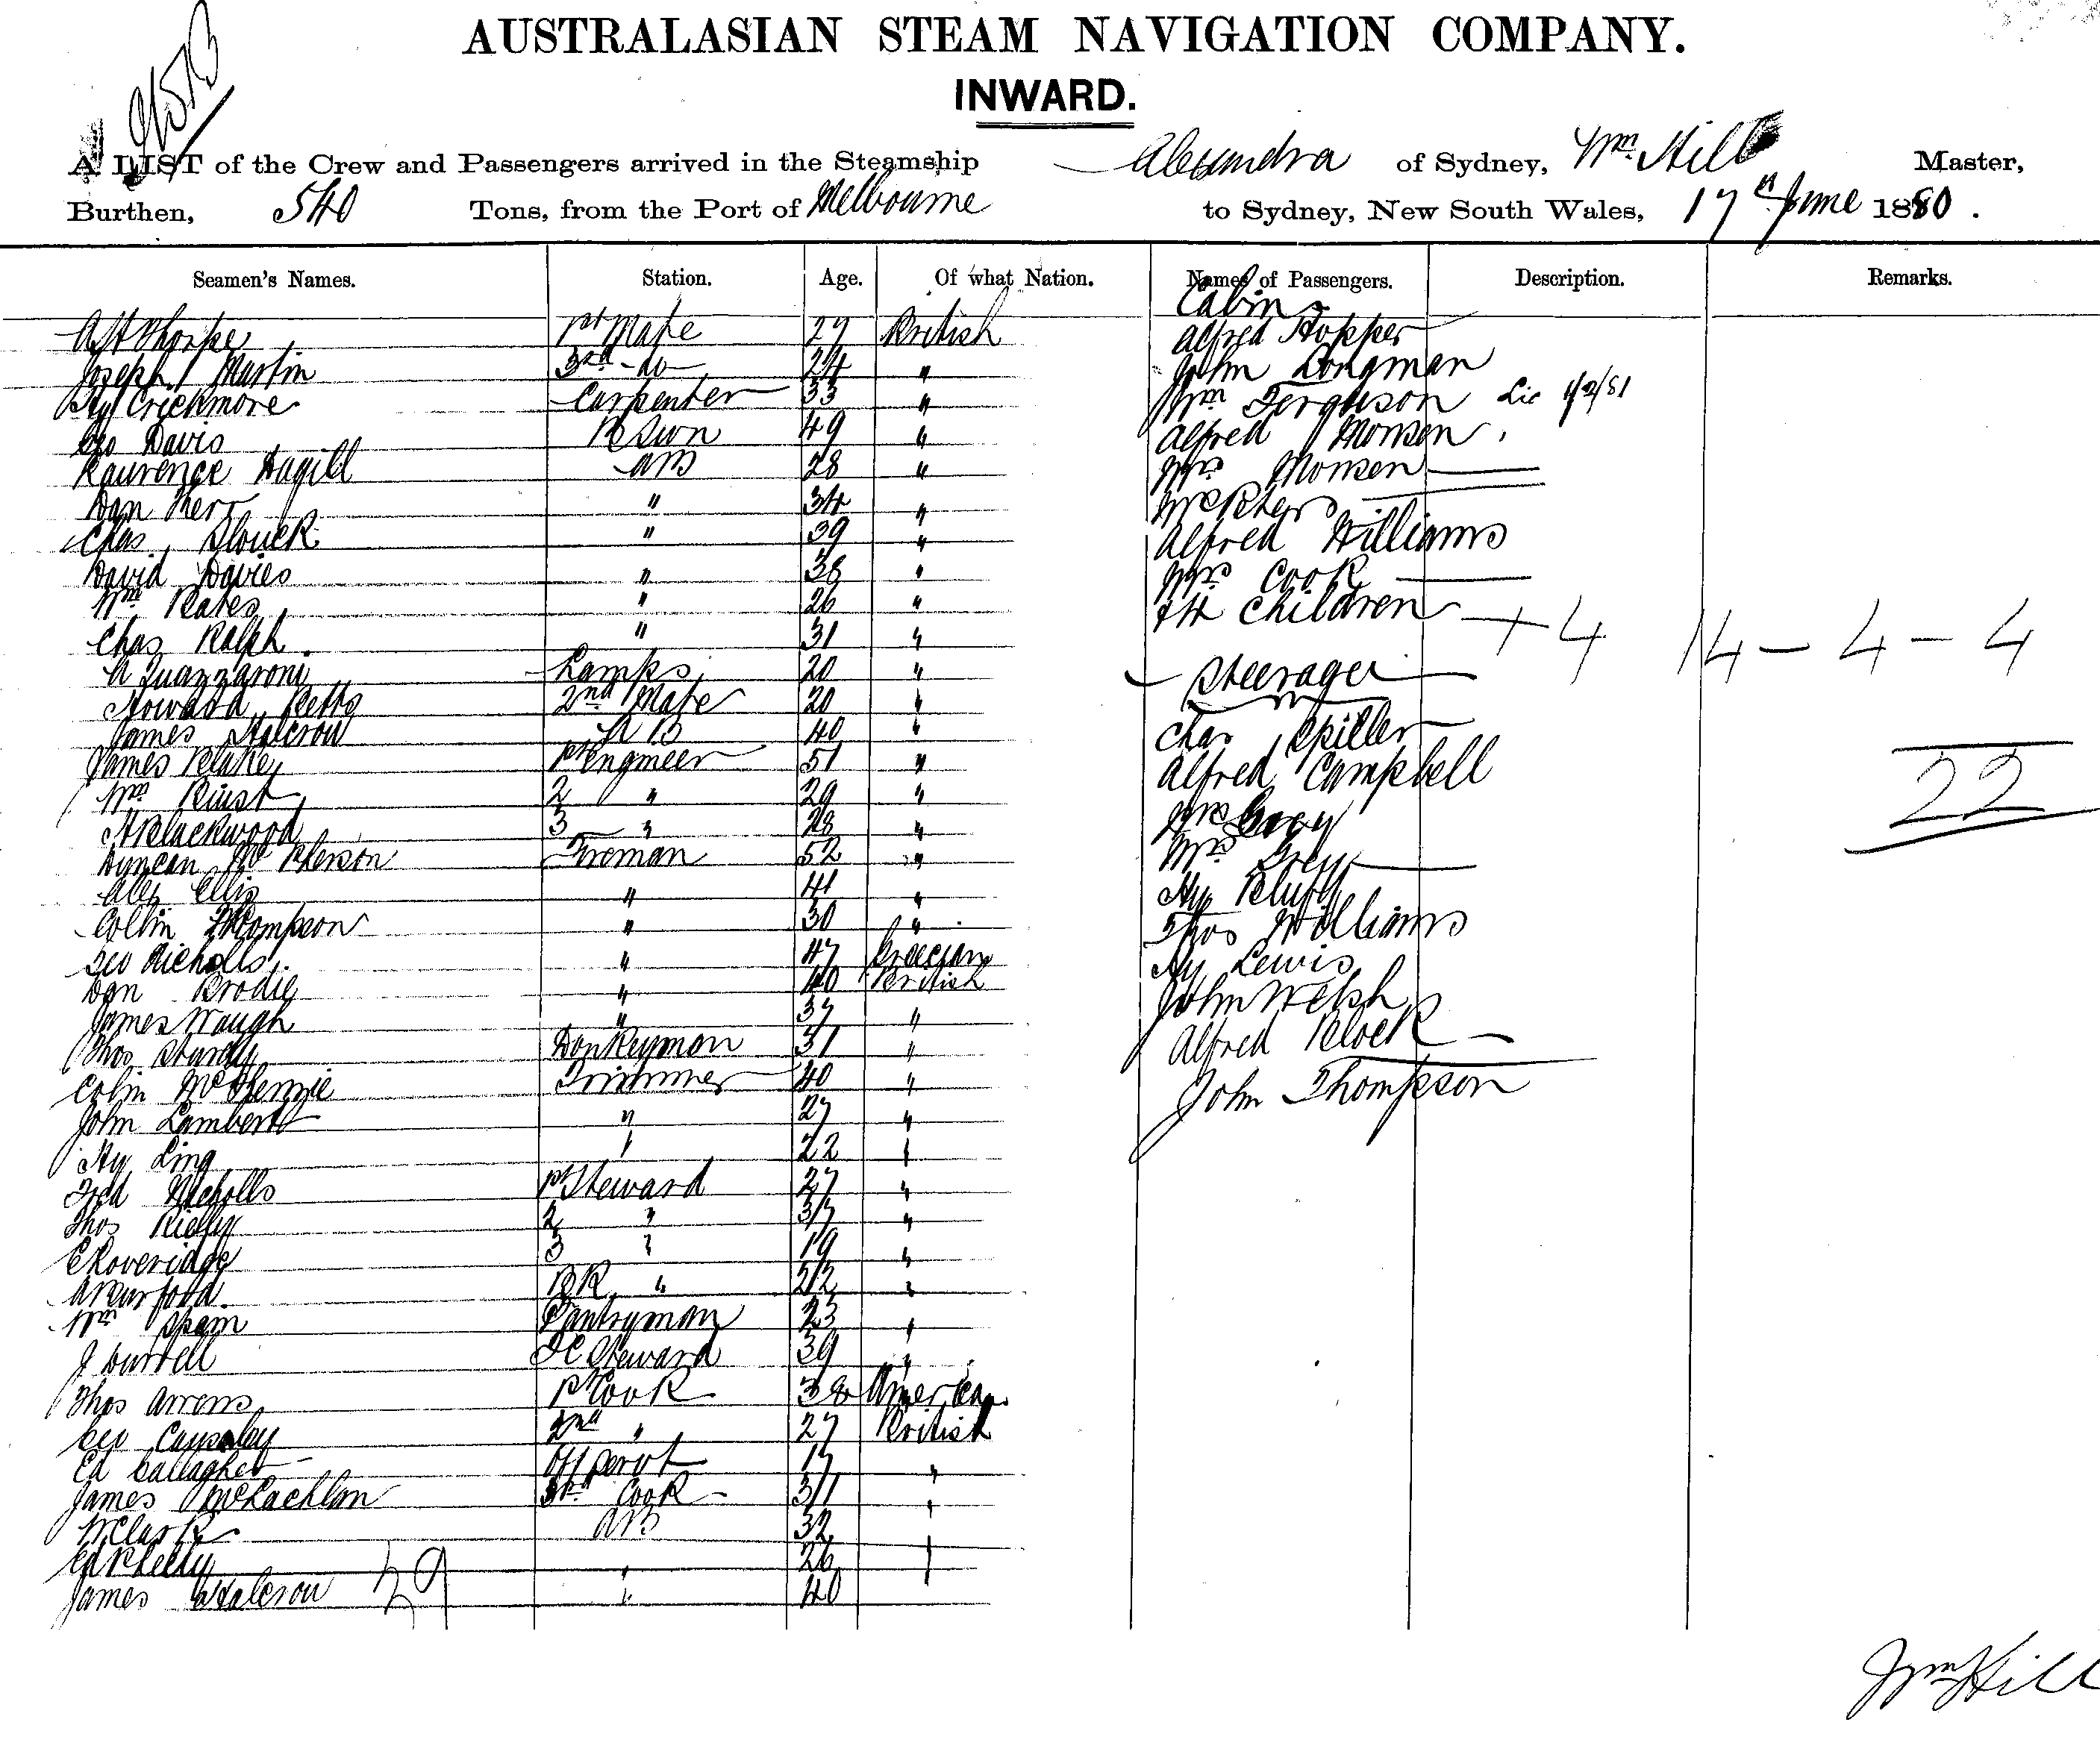 AUSTRALASIAN STEAM NAVIGATION COMPANY.
INWARD.
A LIST of the Crew and Passengers arrived in the Steamship Alexandra of Sydney, Wm. Hill Master,
Burthen, 540 Tons, from the Port of Melbourne to Sydney, New South Wales, 17th June 1880.
Seamen's Names. Station. Age. Of what Nation. Names of Passengers. Description. Remarks.
Cabin
A H Thorpe 1st Mate 27 British Alfred Hopper
Joseph Martin 3rd do 24 " John Longman
Hy Crichmore Carpenter 33 " Wm Ferguson
Geo Davis BSwn 49 " Alfred Monsen
Laurence Hagill AB 28 " Mrs Monsen
Dan Kerr " 34 "
Chas. " 39 " Alfred Williams
David Davies " 38 " Mrs Cook
Wm Bates " 26 " & 4 Children
Chas Ralph. " 31 " + 4 14 - 4 - 4
A Quazzaroni Lamps 20 " Steerage
Howard Betts 2nd Mate 20 "
James Halcrow A B 40 " Chas Spiller
James Blake 1st Engineer 51 " Alfred Campbell 22
Wm 2 " 29 " Mr Grey
A Blackwood 3 " 28 " Mrs Grey
Duncan McPherson Fireman 52 "
Alex Ellis " 41 " Hy Bluff
Collin Thompson " 30 " Thos Williams
Geo Nicholls " 47 Greecian Hy Lewis
Dan Brodie " 40 British John Welsh
James Waugh " 37 " Alfred Block
Thos Sturdy Donkeyman 31 "
Colin Trimmer 40 " John Thompson
John Lambert " 27 "
Hy Ling " 22 "
Fred Nicholls 1st Steward 27 "
Thos Rielly 2 " 37 "
3 " 19 "
BR " 22 "
Wm Spain Pantryman 23 "
J Durrell FC Steward 39 "
Thos Arrens 1st Cook 38 American
Geo Causley 2nd " 27 British
Ed Gallagher 17 "
James McLachlan 3rd Cook 31 "
W Clark AB 32 "
26
James Halcrow " 40
39
Wm Hill